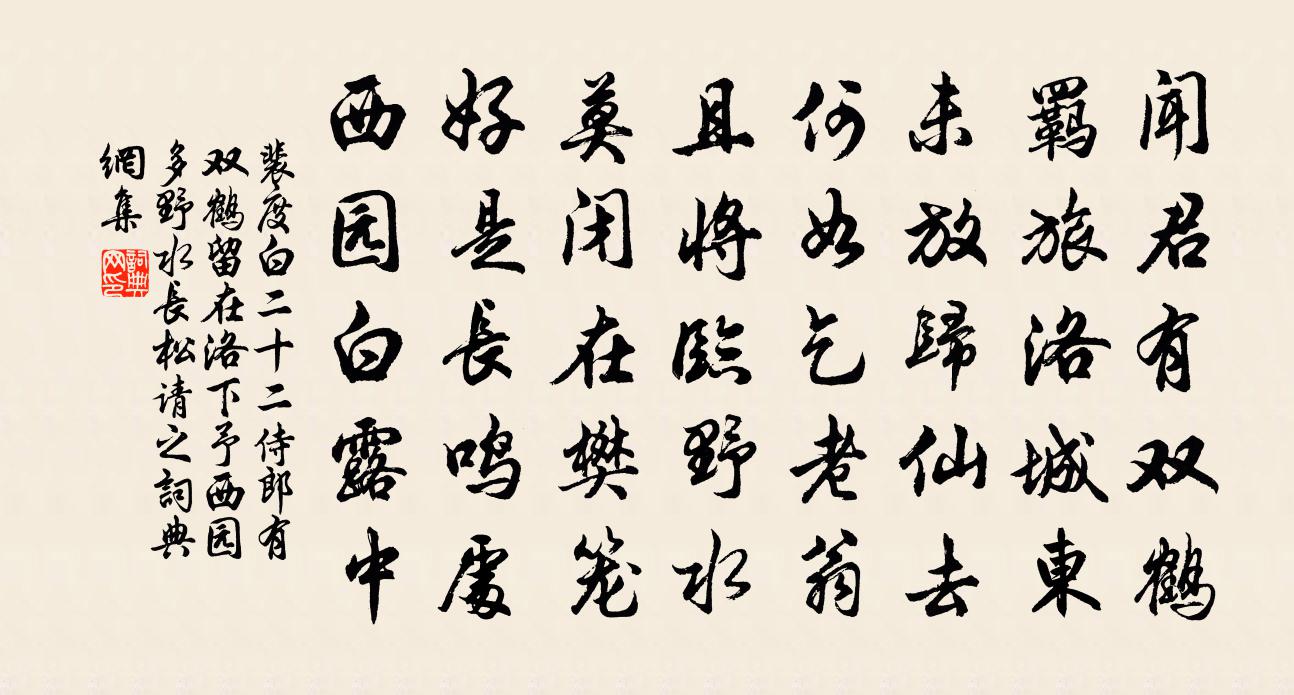 闻君有双鹤
羁旅洛城東
未放歸仙去
何如乞老翁
且将臨野水
莫闭在樊笼
好是長鸣處
西园白露中
裴度白二十二侍郎有
双鹤留在洛下予西园
多野水長松请之詞典
網集
詞典
网印